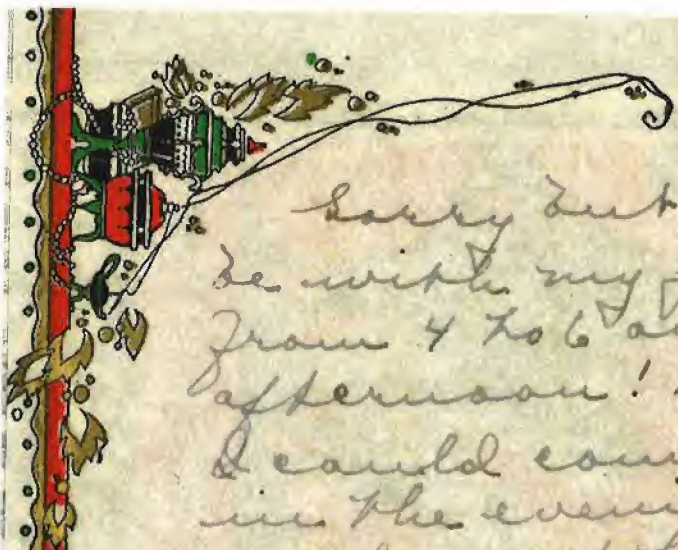 Sorry but
be with my
from 4 to 6
afternoon!
I could
in the